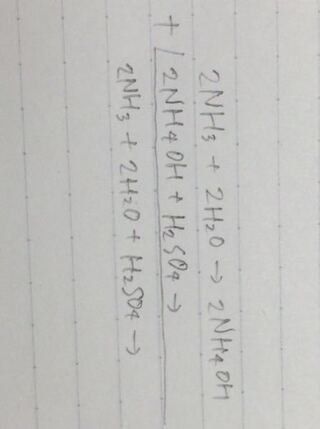 2NH₃ + 2H₂O → 2NH₄OH
+ ) 2NH₄OH + H₂SO₄ →
2NH₃ + 2H₂O + H₂SO₄ →